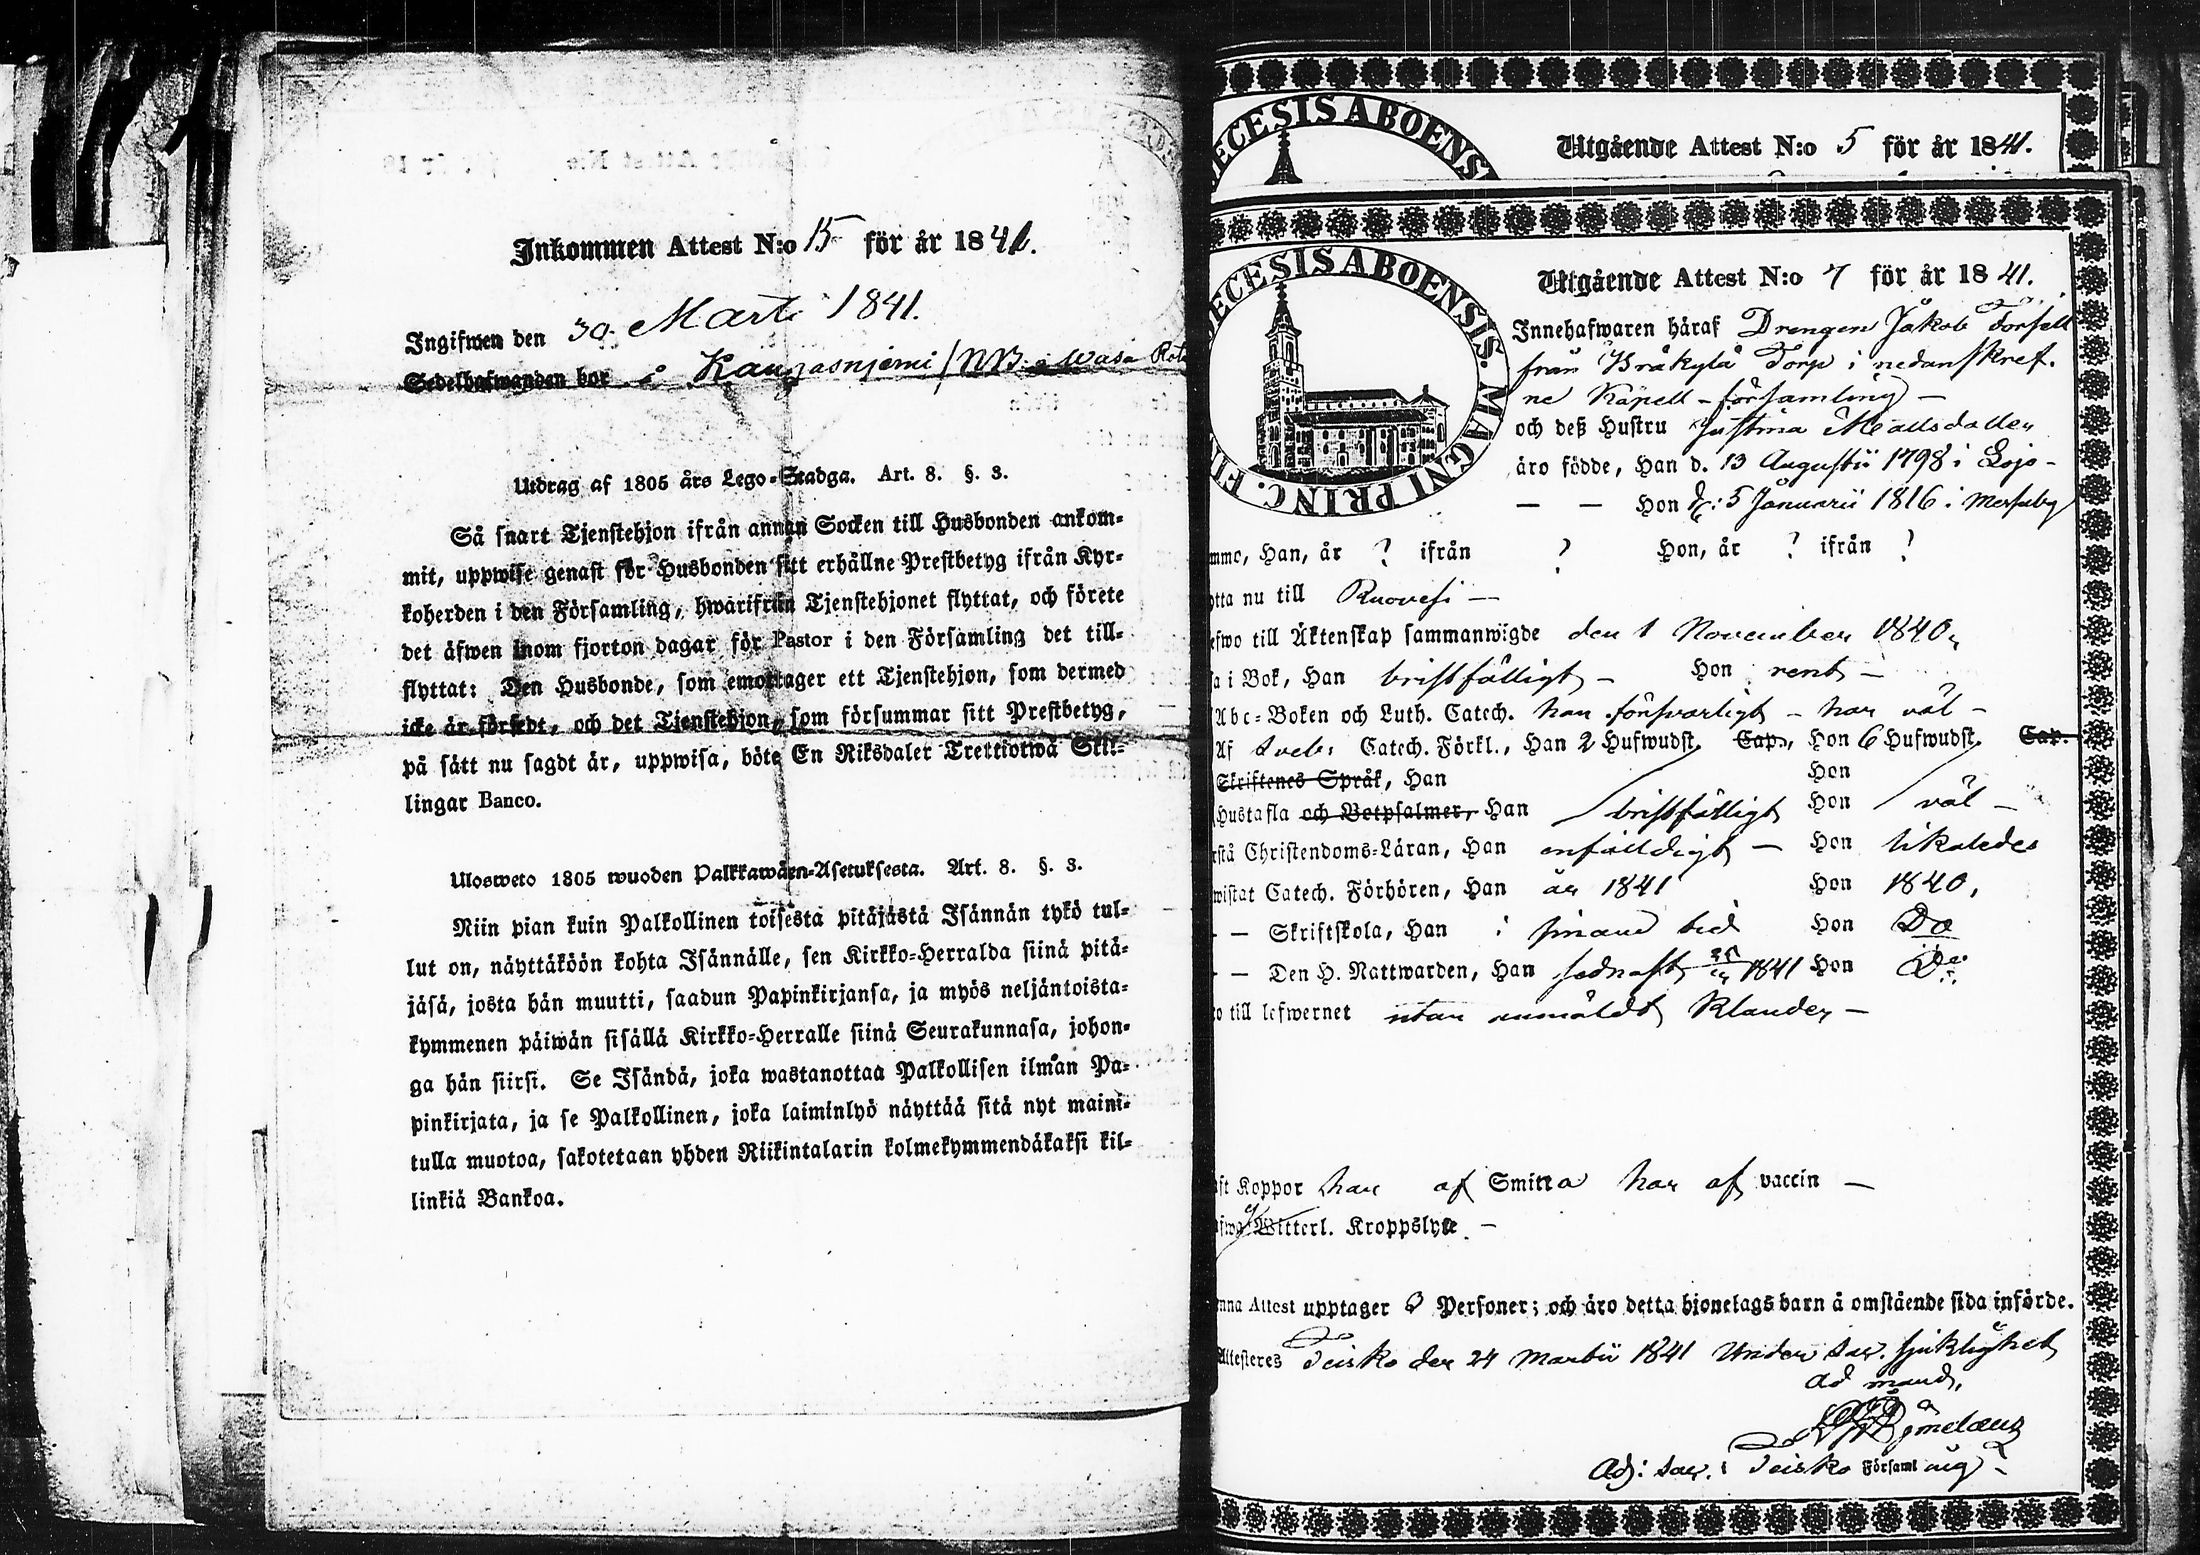 Inkommen Attest N:o 15 för år 1841.
Ingifwen den 30 Marti 1841.
Sedelhafwanden bor i Kangasnjemi / NB. Wasa Rote
Utdrag af 1805 års Lego-Stadga. Art. 8. §. 3.
Så snart Tjenstehjon ifrån annan Socken till Husbonden ankom-
mit, uppwise genast för Husbonden sitt erhållne Prestbetyg ifrån Kyr-
koherden i den Församling, hwarifrån Tjenstehjonet flyttat, och förete
det äfwen inom fjorton dagar för Pastor i den Församling det till-
flyttat: Den Husbonde, som emottager ett Tjenstehjon, som dermed
icke är försedt, och det Tjenstehjon, som försummar sitt Prestbetyg,
på sätt nu sagdt är, uppwisa, böte En Riksdaler Trettiotwå Skil-
lingar Banco.
Ulosweto 1805 wuoden Palkkawäen-Asetuksesta. Art. 8. §. 3.
Niin pian kuin Palkollinen toisesta pitäjästä Isännän tykö tul-
lut on, näyttäköön kohta Isännälle, sen Kirkko-Herralda siinä pitä-
jäsä, josta hän muutti, saadun Papinkirjansa, ja myös neljäntoista-
kymmenen päiwän sisällä Kirkko-Herralle siinä Seurakunnasa, johon-
ga hän siirsi. Se Isändä, joka wastanottaa Palkollisen ilman Pa-
pinkirjata, ja se Palkollinen, joka laiminlyö näyttää sitä nyt maini-
tulla muotoa, sakotetaan yhden Riikintalarin kolmekymmendäkaksi kil-
linkiä Bankoa.
ECESIS ABOENS
Utgående Attest N:o 5 för år 1841.
ECESIS ABOENSIS. MAGNI PRINC. FIN
Utgående Attest N:o 7 för år 1841.
Innehafwaren häraf Drengen Jakob Forsell
från Bråkylä Torp i nedanskref.
ne Kapell-församling —
och deß Hustru Justina Mattsdotter
äro födde, Han d. 13 Augustii 1798 i Lojo-
— — Hon d: 5 Januarii 1816 i Messuby
mmo, Han, år ? ifrån ? Hon, år ? ifrån ?
tta nu till Ruovesi —
efwo till Äktenskap sammanwigde den 1 November 1840.
a i Bok, Han bristfälligt — Hon rent —
Abc-Boken och Luth. Catech. han försvarligt — hon väl —
Af Sveb: Catech. Förkl., Han 2 Hufwudst. Cap., Hon 6 Hufwudst. Cap.
Skriftenes Språk, Han Hon
Hustafla och Botpsalmer, Han bristfälligt Hon väl —
rstå Christendoms-Läran, Han enfaldigt — Hon likaledes
wistat Catech. Förhören, Han år 1841 Hon 1840,
— — Skriftskola, Han i sinom tid Hon Do
— — Den H. Nattwarden, Han sednast 1841 Hon Do
o till lefwernet utan anmäldt klander —
ft Koppor han af Smitta hon af vaccin —
fwa Witterl. Kroppslyte —
nna Attest upptager 3 Personer; och äro detta hjonelags barn å omstående sida införde.
Attesteres Teisko den 24 Martii 1841 Under Sac. sjuklighet
Ad mand.
Adj: Sac. i Teisko Församling